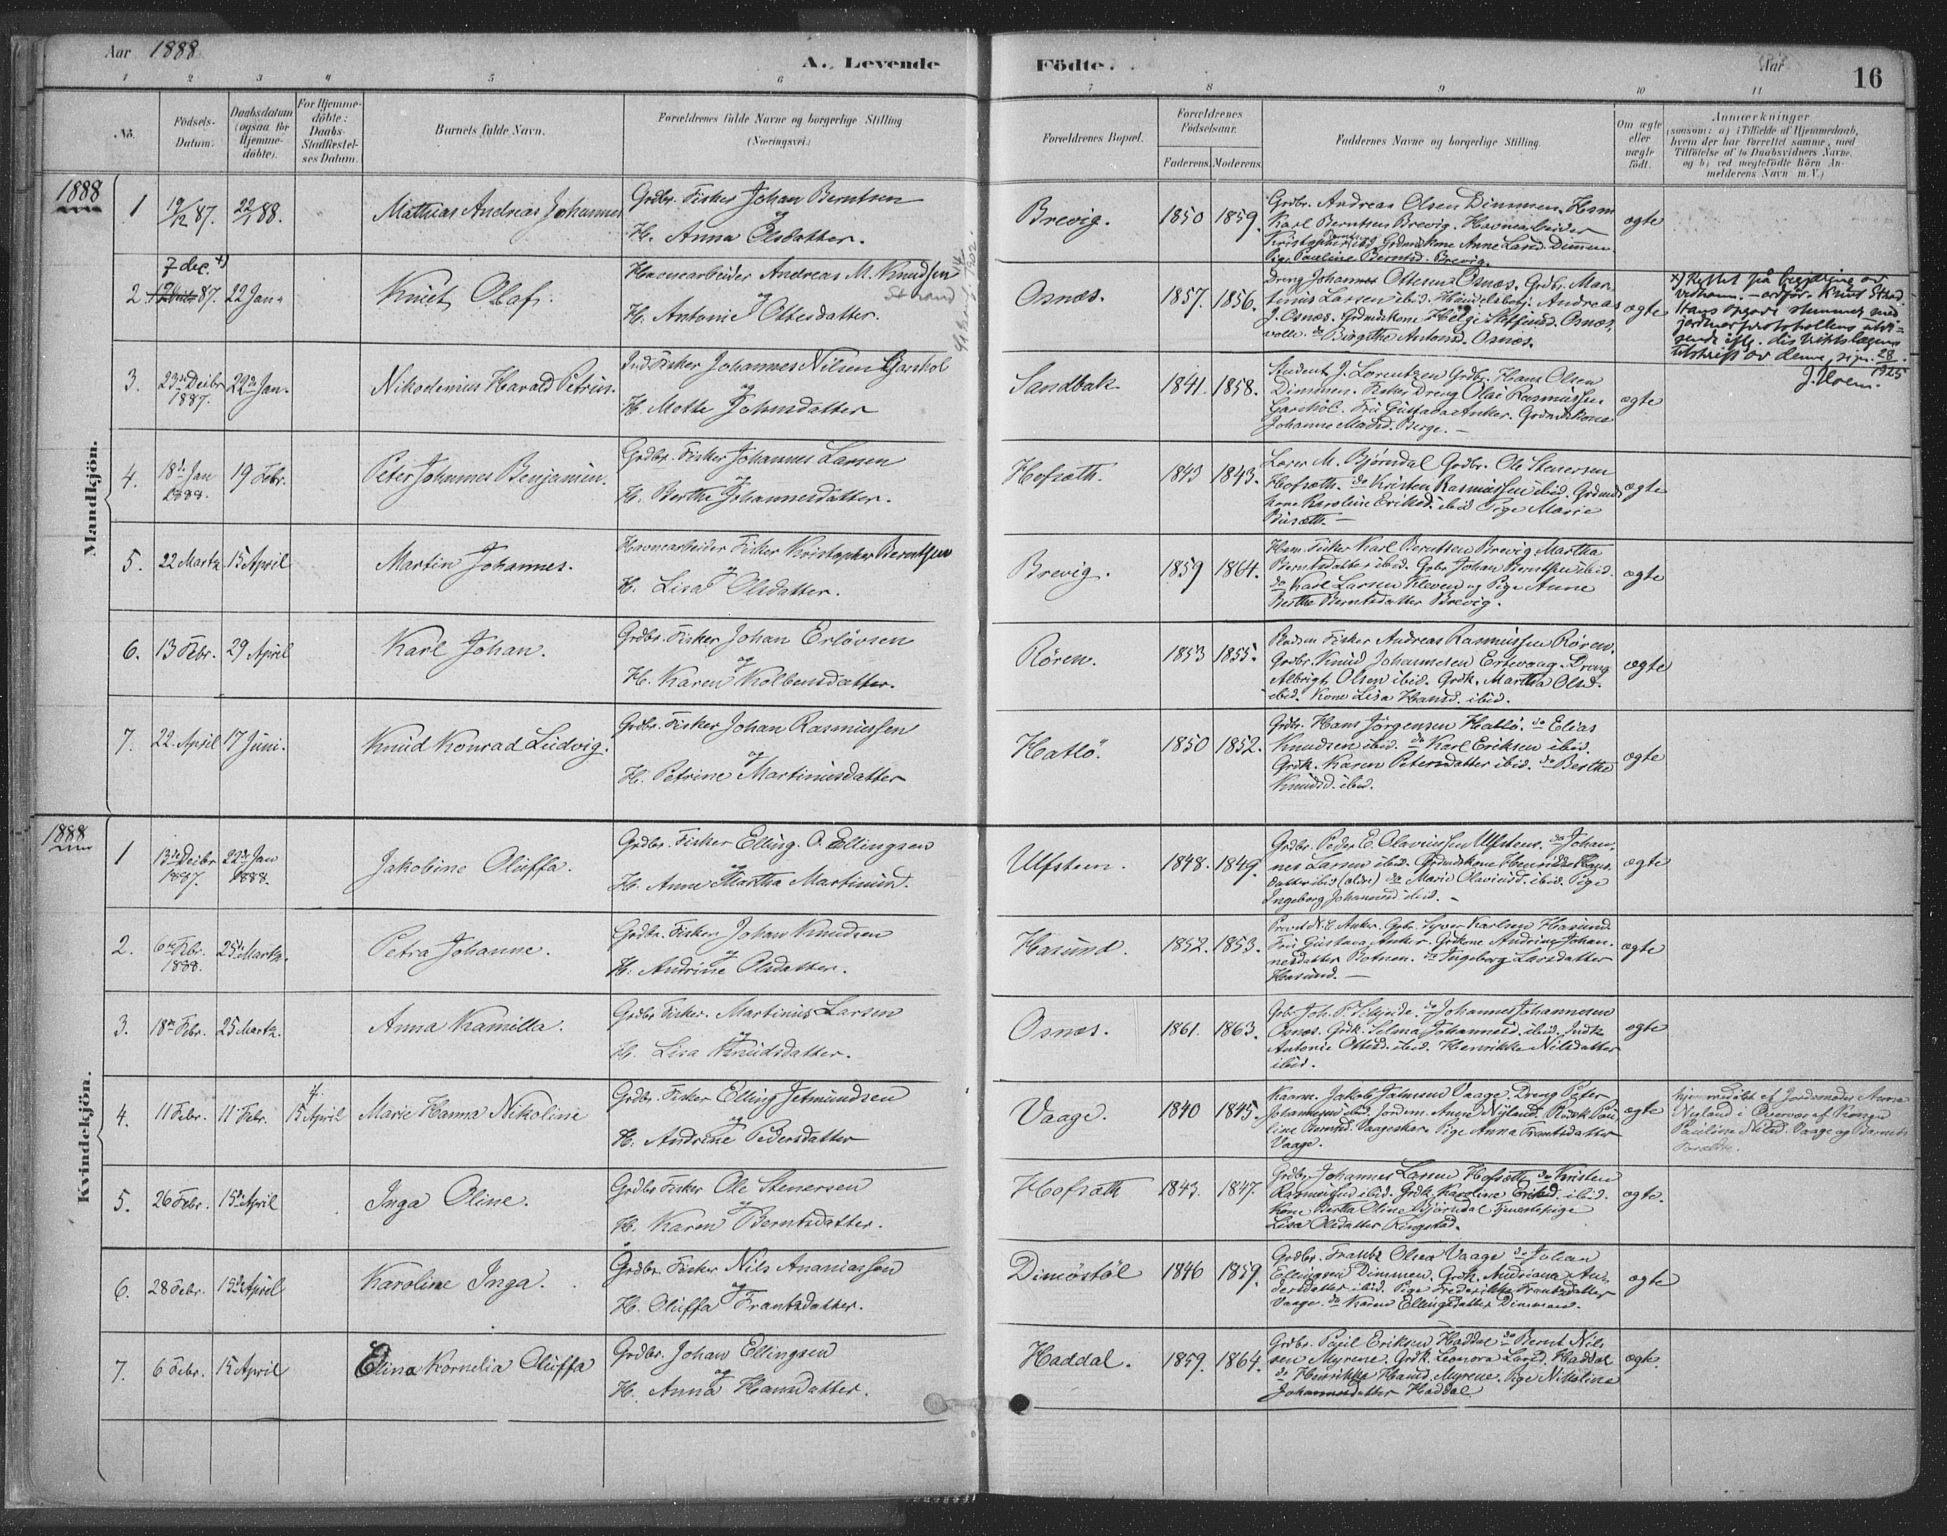 Aar 1888
A. Levende
Födte.
Aar
16
1 2 3 4 5 6 7 8 9 10 11
No.
Födsels-
Datum.
Daabsdatum
(ogsaa for
Hjemme-
döbte).
For Hjemme-
döbte:
Daabs-
Stadfæstel-
ses Datum.
Barnets fulde Navn.
Forældrenes fulde Navne og borgerlige Stilling
(Næringsvei.)
Forældrenes Bopæl.
Forældrenes
Födselsaar.
Faderens. Moderens.
Faddernes Navne og borgerlige Stilling.
Om ægte
eller
uægte
födt.
Anmærkninger
(saasom: a) i Tilfælde af Hjemmedaab,
hvem der har forrettet samme, med
Tilföielse af to Daabsvidners Navne,
og b) ved uægtefödte Börn An-
melderens Navn m. V.)
1888
Mandkjön.
1 19/12 87. 22/1 88. Mathias Andreas Johannes
Grdbr. Fisker Johan Berntsen
og
H. Anna Olsdatter.
Brevig. 1850 1859.
Grdbr. Andreas Olsen Dimmen. Hsm
Karl Berntsen Brevig. Havnearbeider
Kristopher ibid. Grdmdskone Anne Larsd. Dimmen
Pige Pauline Berntsd. Brevig.
ægte
7 dec. +)
2 87. 22 Jan. Knut Olaf.
Havnearbeider Andreas M. Knudsen
Strand
og
H. Antonie Ottesdatter.
Osnæs. 1857. 1856.
Dreng Johannes Ottesen Osnæs. Grdbr. Mar-
tinus Larsen ibid. Handelsbetj. Andreas
J. Osnæs. Grdmdskone Helge Osnæs.
Birgithe Antonsd. Osnæs.
ægte
+) Rettet på begjæring av
vedkom. Knut Strand.
Hans opgave stemmer med
jordmorprotokollens utvi-
sende
utskrift av denne, sign. 28/
1925
J. Hoem.
3. 23de Decbr 1887. 22de Jan. Nikodemus Harald Petrin.
Ind. Fisker Johannes Nilsen Garshol
og
H. Mette Johnsdatter
Sandbak. 1841. 1858.
Student J. Lorentzen Grdbr. Hans Olsen
Dimmen. Fisker Dreng Olai Rasmussen
Garshol. Fru Gustava Anker. Grdmdskone
Johanne Madsd. Berge. —
ægte
4. 18de Jan 1888. 19 Febr. Peter Johannes Benjamin.
Grdbr. Fisker Johannes Larsen
og
H. Berthe Johannesdatter.
Hofsæth. 1843 1843.
Lærer M. Bjørndal Grdbr. Ole Stenersen
Hofsæth. do Kristen Rasmussen ibid. Grdmds-
kone Karoline Eriksd. ibid Pige Marie
ægte
5. 22 Martz 15 April Martin Johannes.
Havnearbeider Fisker Kristopher Berntsen
og
H. Lisa Olsdatter.
Brevig. 1859 1864.
Hsm. Fisker Karl Berntsen Brevig Martha
Berntsdatter ibid. Gdbr. Johan Berntsen ibid.
do Karl Larsen Kleven og Pige Anne
Berthe Berntsdatter Brevig.
ægte
6. 13 Febr. 29 April Karl Johan.
Grdbr. Fisker Johan Erlövsen
og
H. Karen Kolbensdatter.
Røren. 1853 1855.
Fisker Andreas Rasmussen Røren.
Grdbr. Knud Johannesen Eriksvaag. Dreng
Albrigt Olsen ibid. Grdk. Martha Olsd.
ibid. Kone Lisa Hansd. ibid.
ægte
7. 22. April 17 Juni. Knud Konrad Ludvig.
Grdbr. Fisker Johan Rasmussen
og
H. Petrine Martinusdatter
Hatlö. 1850 1852.
Grdbr. Hans Jörgensen Hatlö. do Elias
Knudsen ibid. do Karl Eriksen ibid.
Grdk. Karen Petersdatter ibid. do Berthe
Knudsd. ibid.
ægte
1888
Kvindekjön.
1 13de Decbr 1887. 22de Jan 1888. Jakobine Oluffa.
Grdbr. Fisker Elling O. Ellingsen
og
H. Anne Martha Martinusd.
Ulfsten. 1848. 1849.
Grdbr. Peder E. Olaviussen Ulfsten. do Johan-
nes Larsen ibid. Grdmdskone Henrikke Hans-
datter ibid (ældre) do Marie Olaviusd. ibid. Pige
Ingeborg Johannesd. ibid. —
ægte
2. 6te Febr. 1888. 25de Martz. Petra Johanne.
Grdbr. Fisker Johan Knudsen
og
H. Andrine Olsdatter.
Hasund. 1852. 1853.
N. C. Anker. Gdb. Syver Karlsen Hasund.
Fru Gustava Anker. Grdkone Andrine Johan-
nesdatter Botnen. do Ingeborg Larsdatter
Hasund. —
ægte
3. 18de Febr. 25 Martz. Anna Kamilla.
Grdbr. Fisker. Martinus Larsen
og
H. Lisa Knudsdatter.
Osnæs. 1861. 1863.
Gdb. Joh. P. Skeide. do Johannes Johannesen
Osnæs. Grdk. Selma Johannesd. ibid.
Antonie Ottesd. ibid. Henrikke Nilsdatter
ibid.
ægte
4. 11 Febr. 11 Febr. 15 April Marie Hanna Nikoline
Grdbr. Fisker Elling Jetmundsen
og
H. Andrine Pedersdatter
Vaage. 1840 1845.
Kaarm. Jakob Salmesen Vaage. Dreng Peter
Johannesen ibid. Jordem. Anne Nyland.
Berntsd. Vaageskar. Pige Anna Frantsdatter
Vaage.
ægte
Hjemmedøbt af Jordemoder Anna
Nyland i Overvær af
Pauline Nilsd. Vaage og Barnets
Forældre.
5. 26 Febr. 15de April Inga Oline.
Grdbr. Fisker Ole Stenersen
og
H. Karen Berntsdatter.
Hofsæth 1843. 1847.
Grdbr. Johannes Larsen Hofsæth. do Kristen
Rasmussen ibid. Grdk. Karoline Eriksd. ibid.
Kone Bertha Oline Bjørndal Tjenestepige
Lisa Olsdatter Ringstad.
ægte.
6. 28 Febr. 15de April Karoline Inga.
Grdbr. Fisker Nils Ananiassen
og
H. Oluffa Frantsdatter.
Dimöstöl 1846 1859.
Grdbr. Frants Olsen Vaage do Johan
Ellingsen Dimmen. Grdk. Andriana An-
dersdatter ibid. Pige Frederikke Frantsdatter
Vaage. do Karen Ellingsdatter Dimmen.
ægte
7. 6 Febr. 15 April Elina Kornelia Oluffa
Grdbr. Johan Ellingsen
og
H. Anna Hansdatter.
Haddal. 1859. 1864.
Grdbr. Paul Eriksen Haddal do Bernt Nils-
sen Myrene. Grdk. Leonora Larsd. Haddal
do Henrikke Hansd. Myrene. Pige Nikoline
Johannesdatter Haddal
ægte.